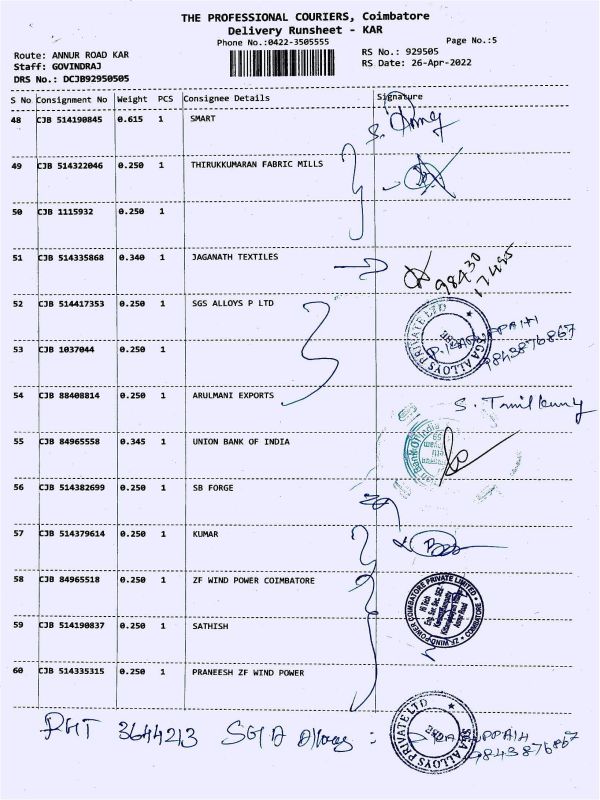 THE PROFESSIONAL COURIERS, Coimbatore
Delivery Runsheet - KAR
Phone No.:0422-3505555
Page No.:5
Route: ANNUR ROAD KAR
RS No.: 929505
Staff: GOVINDRAJ
RS Date: 26-Apr-2022
DRS No.: DCJB92950505
S No Consignment No Weight PCS Consignee Details Signature
48 CJB 514190845 0.615 1 SMART
49 CJB 514322046 0.250 1 THIRUKKUMARAN FABRIC MILLS
50 CJB 1115932 0.250 1
51 CJB 514335868 0.340 1 JAGANATH TEXTILES
98430
17485
52 CJB 514417353 0.250 1 SGS ALLOYS P LTD
53 CJB 1037044 0.250 1
SGA ALLOYS PRIVATE LTD
9843876867
54 CJB 88408814 0.250 1 ARULMANI EXPORTS
55 CJB 84965558 0.345 1 UNION BANK OF INDIA
56 CJB 514382699 0.250 1 SB FORGE
57 CJB 514379614 0.250 1 KUMAR
58 CJB 84965518 0.250 1 ZF WIND POWER COIMBATORE
ZF WIND POWER COIMBATORE PRIVATE LIMITED
COIMBATORE
59 CJB 514190837 0.250 1 SATHISH
60 CJB 514335315 0.250 1 PRANEESH ZF WIND POWER
3644213 SGA
SGA ALLOYS PRIVATE LTD
9843876867